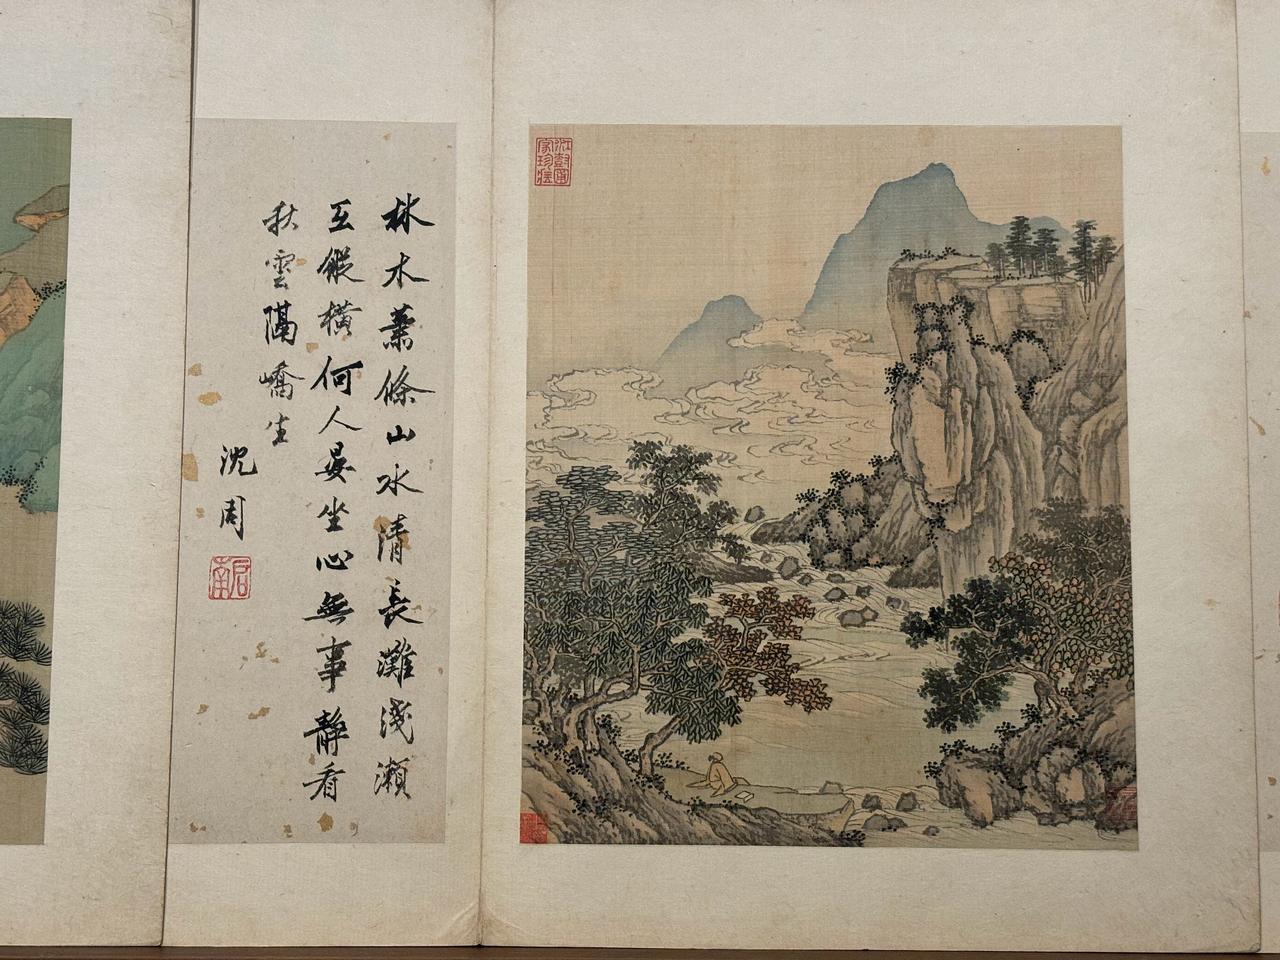 林木蕭條山水清長灘淺瀨
互縱橫何人晏坐心無事靜看
秋雲隔嶠生
沈周
启南